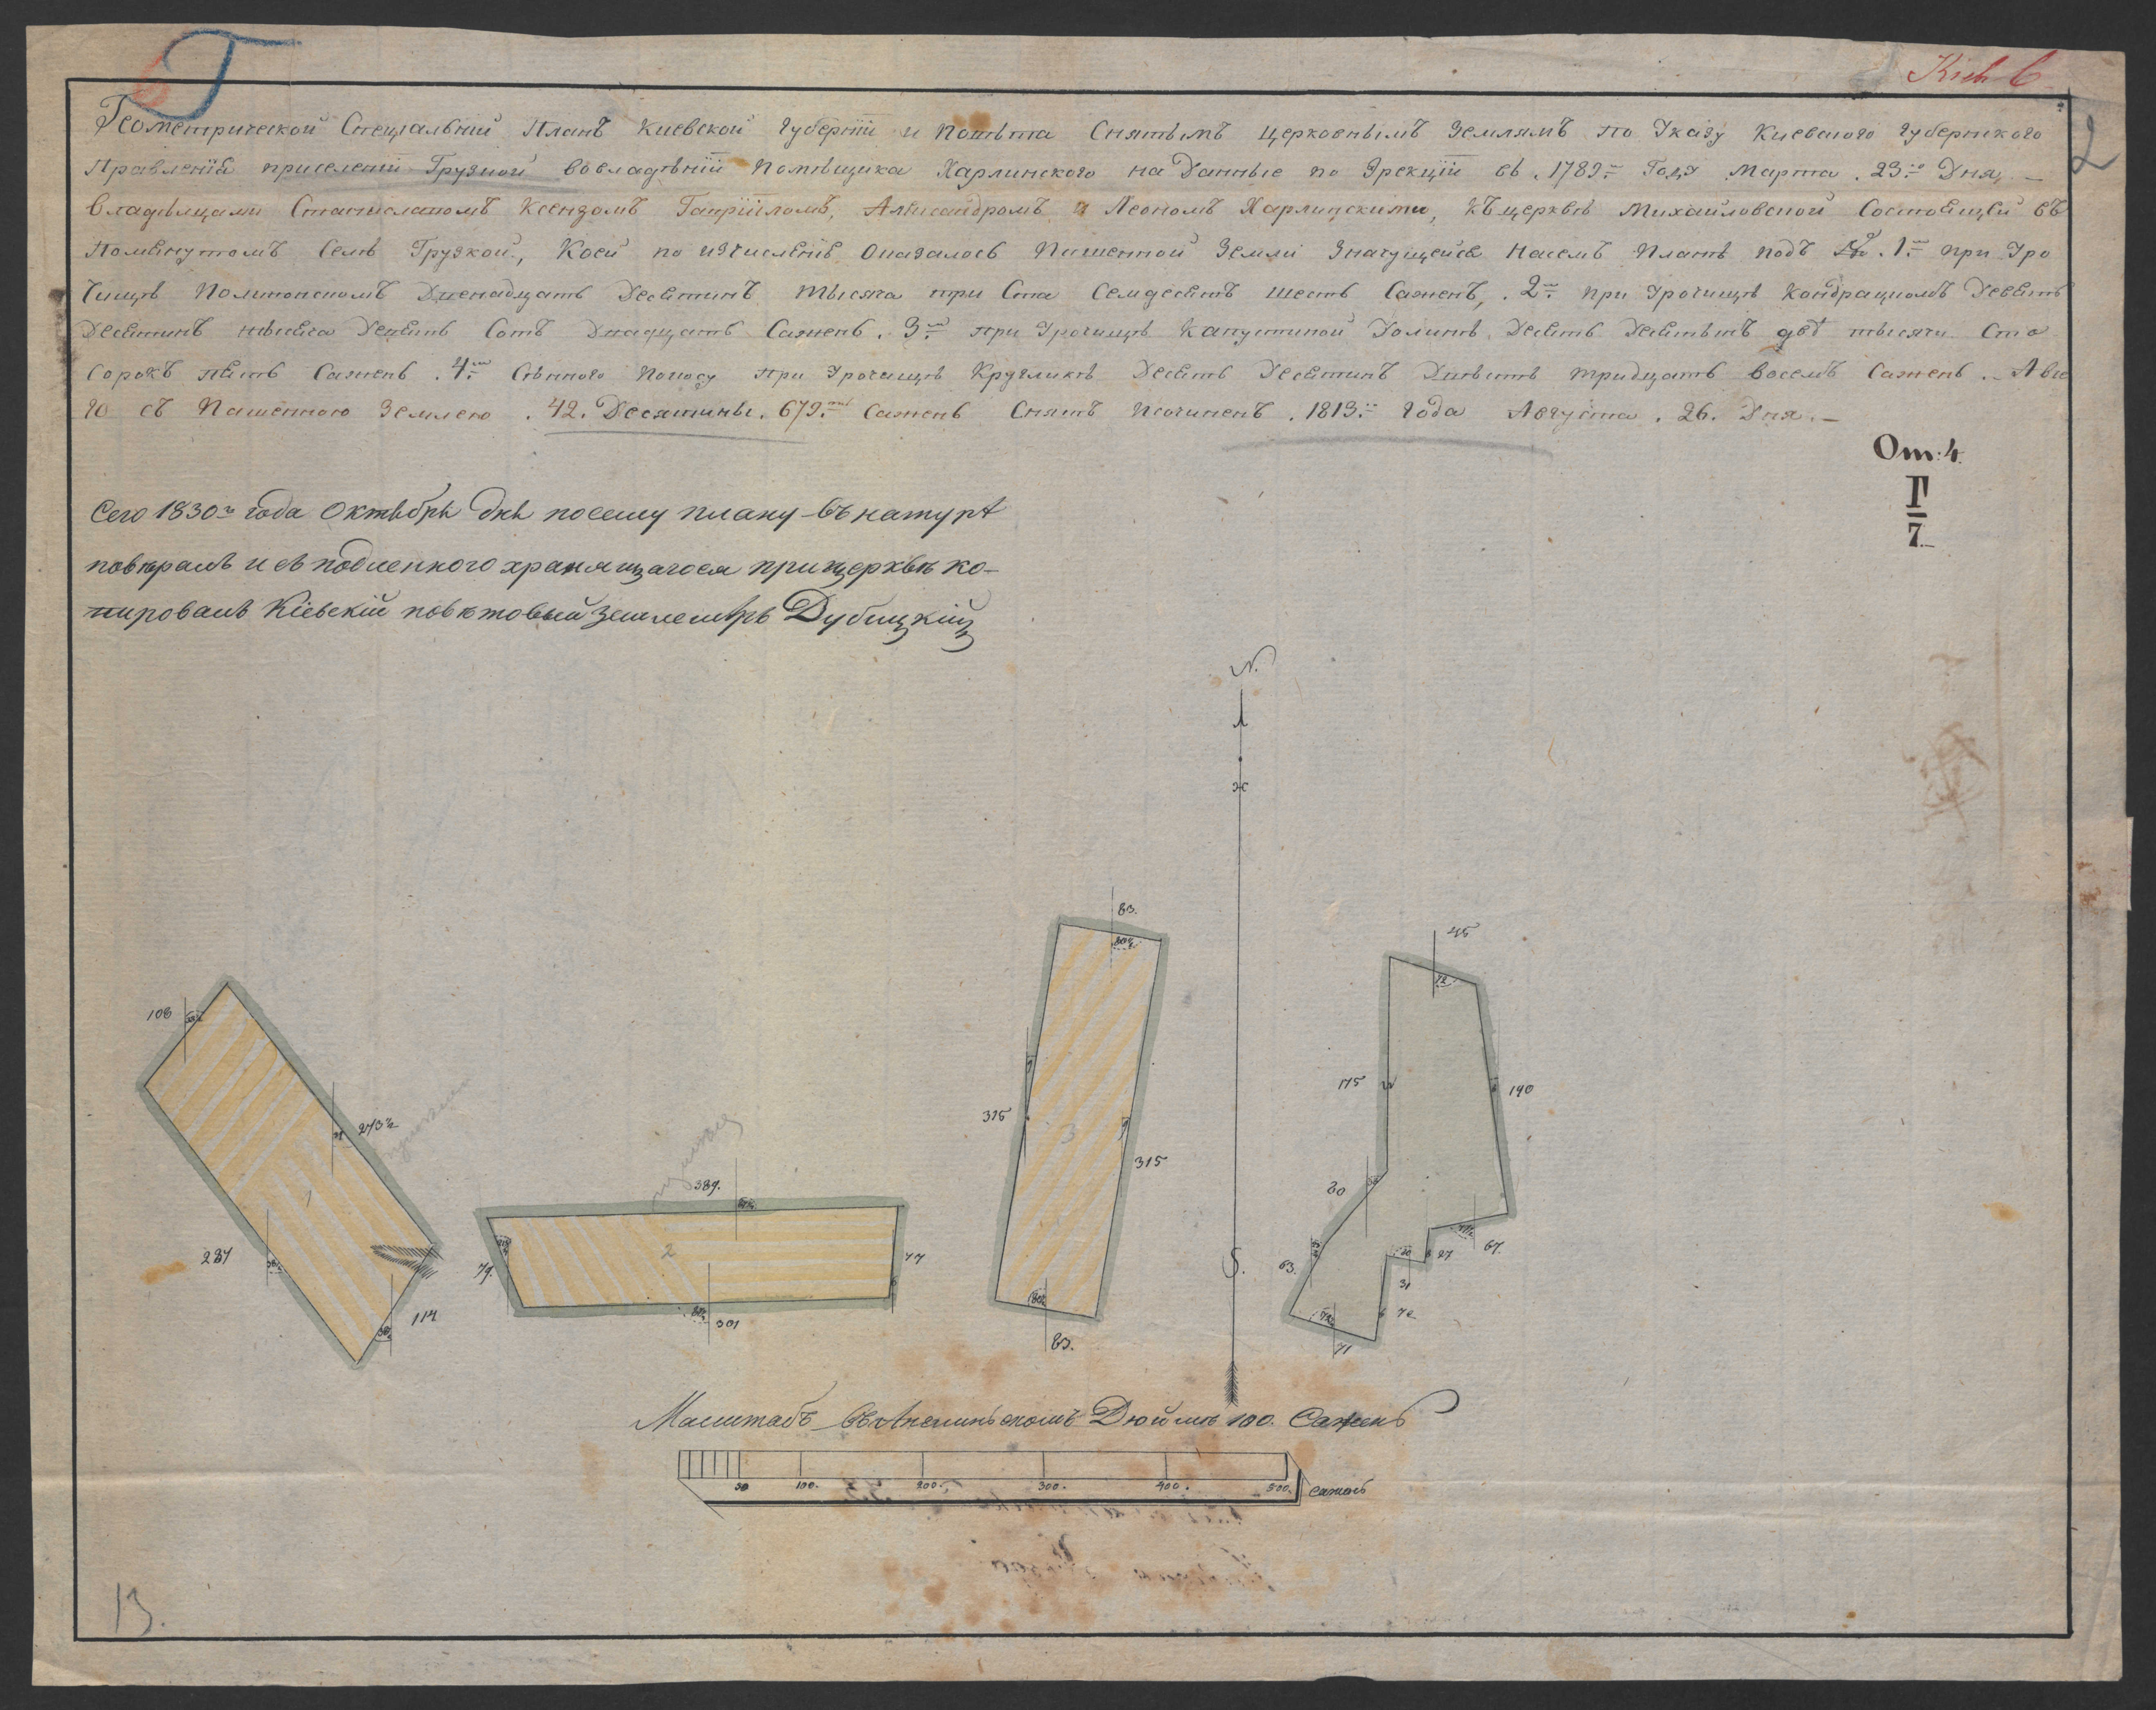 Г
Кіев
2
Геометрической Специальный Планъ Киевской губерніи и повѣта Снятымъ церковнымъ Землямъ по Указу Киевского губернского
Правленія приселеніи Грузкой вовладѣніи Помѣщика Харлинского на Данные по Эрекціи въ .1789го Году Марта .23го Дня,
Владѣлцами Станиславомъ Ксендзомъ Гавріиломъ, Александромъ и Леономъ Харлинскими, къ церквѣ Михайловской Состоящей въ
Помянутомъ Селѣ Грузкой, Коей по изчисленіе Оказалось Пашенной Земли Значущейся насемъ Планѣ подъ № .1м при Уро
чищѣ Двенадцать Десятинъ тысяча три Ста Семдесятъ шесть Саженъ, .2м при Урочищѣ Девять
Десятинъ тысяча Девять Сотъ Двадцать Сажень .3м при Урочищѣ Капустиной Долинѣ Десять Десятинъ двѣ тысячи Сто
Сорокъ пять Сажень .4м Сѣнного Покосу при Урочищѣ Кругликѣ Десять Десятинъ Двѣстѣ тридцать восемъ Сажень. А все
го съ Пашенного Землею .42. Десятины. 679. Сажень Снятъ Исочиненъ .1813го года Августа .26. Дня.
От: 4.
Г
7.
Сего 1830го года Октября дня посему плану въ натурѣ
повѣрялъ и съ подленного хранящагося прицерквѣ ко-
пировалъ Кіевскій повѣтовый землемѣръ Дубицкій
N.
83.
45
108
273½
175
190
315
315
389.
80
281
77
67.
79.
63.
27
31
114
301
72
83.
71
1
2
3
S.
Масштабъ въ Англинскомъ Дюймѣ 100. Сажень
50 100. 200. 300. 400. 500. сажень
13.